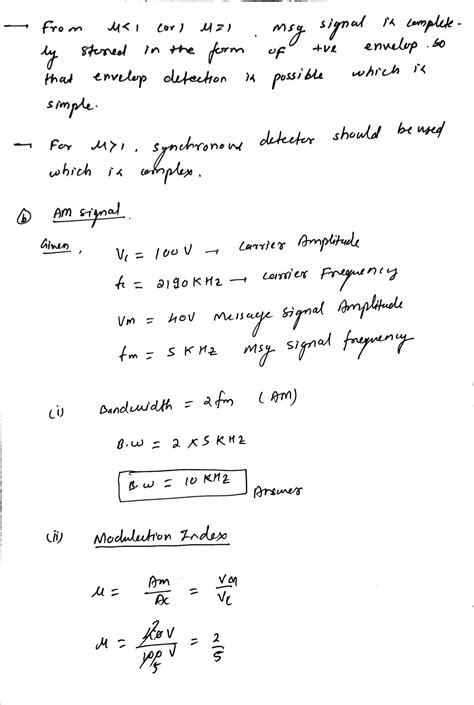 → From μ<1 (or) μ=1, Msg signal is complete-
ly stored in the form of +ve envelop. So
that envelop detection is possible which is
simple.
→ For μ>1, synchronous detector should be used
which is complex.
(b) AM signal.
Given, Vc = 100 V → Carrier Amplitude
fc = 2190 KHz → Carrier Frequency
Vm = 40V Message signal Amplitude
fm = 5 KHz Msg signal frequency
(i) Bandwidth = 2fm (AM)
B.W = 2 x 5 KHz
B.W = 10 KHz Answer
(ii) Modulation Index
μ = Am/Ac = Vm/Vc
μ = 40V/100V = 2/5